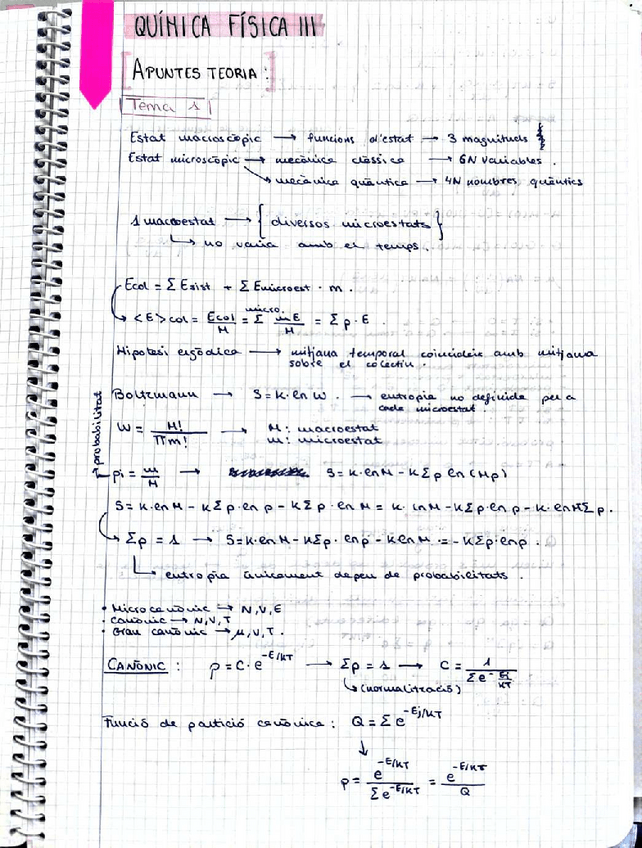 QUÍMICA FÍSICA III
[APUNTES TEORIA:]
Tema 1
Estat macroscòpic → funcions d'estat → 3 magnituds
Estat microscòpic → mecànica clàssica → 6N variables.
→ mecànica quàntica → 4N nombres quàntics
1 macroestat → { diversos microestats }
→ no varia amb el temps.
Ecol = Σ Esist + Σ Emicroest · m.
→ <E>col = Ecol/M = Σ micro. mE/M = Σ p·E
Hipòtesi ergòdica → mitjana temporal coincideix amb mitjana
sobre el colectiu.
Boltzmann → S = K·ln W. → entropia no definida per a
cada microestat
W = M!/Πm! → M: macroestat
m: microestat
probabilitat
pi = m/M → S = K·lnM - KΣp ln(Mp)
S = K·lnM - KΣp·lnp - KΣp·lnM = K·lnM - KΣp·lnp - K·lnMΣp.
→ Σp = 1 → S = K·lnM - KΣp·lnp - KlnM = -KΣp·lnp.
→ entropia únicament depèn de probabilitats.
• Microcanònic → N,V,E
• Canònic → N,V,T
• Gran canònic → μ,V,T.
CANÒNIC: p = C·e^-E/KT → Σp = 1 → C = 1/Σe^-Ej/KT
→ (normalització)
Funció de partició canònica: Q = Σe^-Ej/KT
↓
p = e^-E/KT/Σe^-E/KT = e^-E/KT/Q